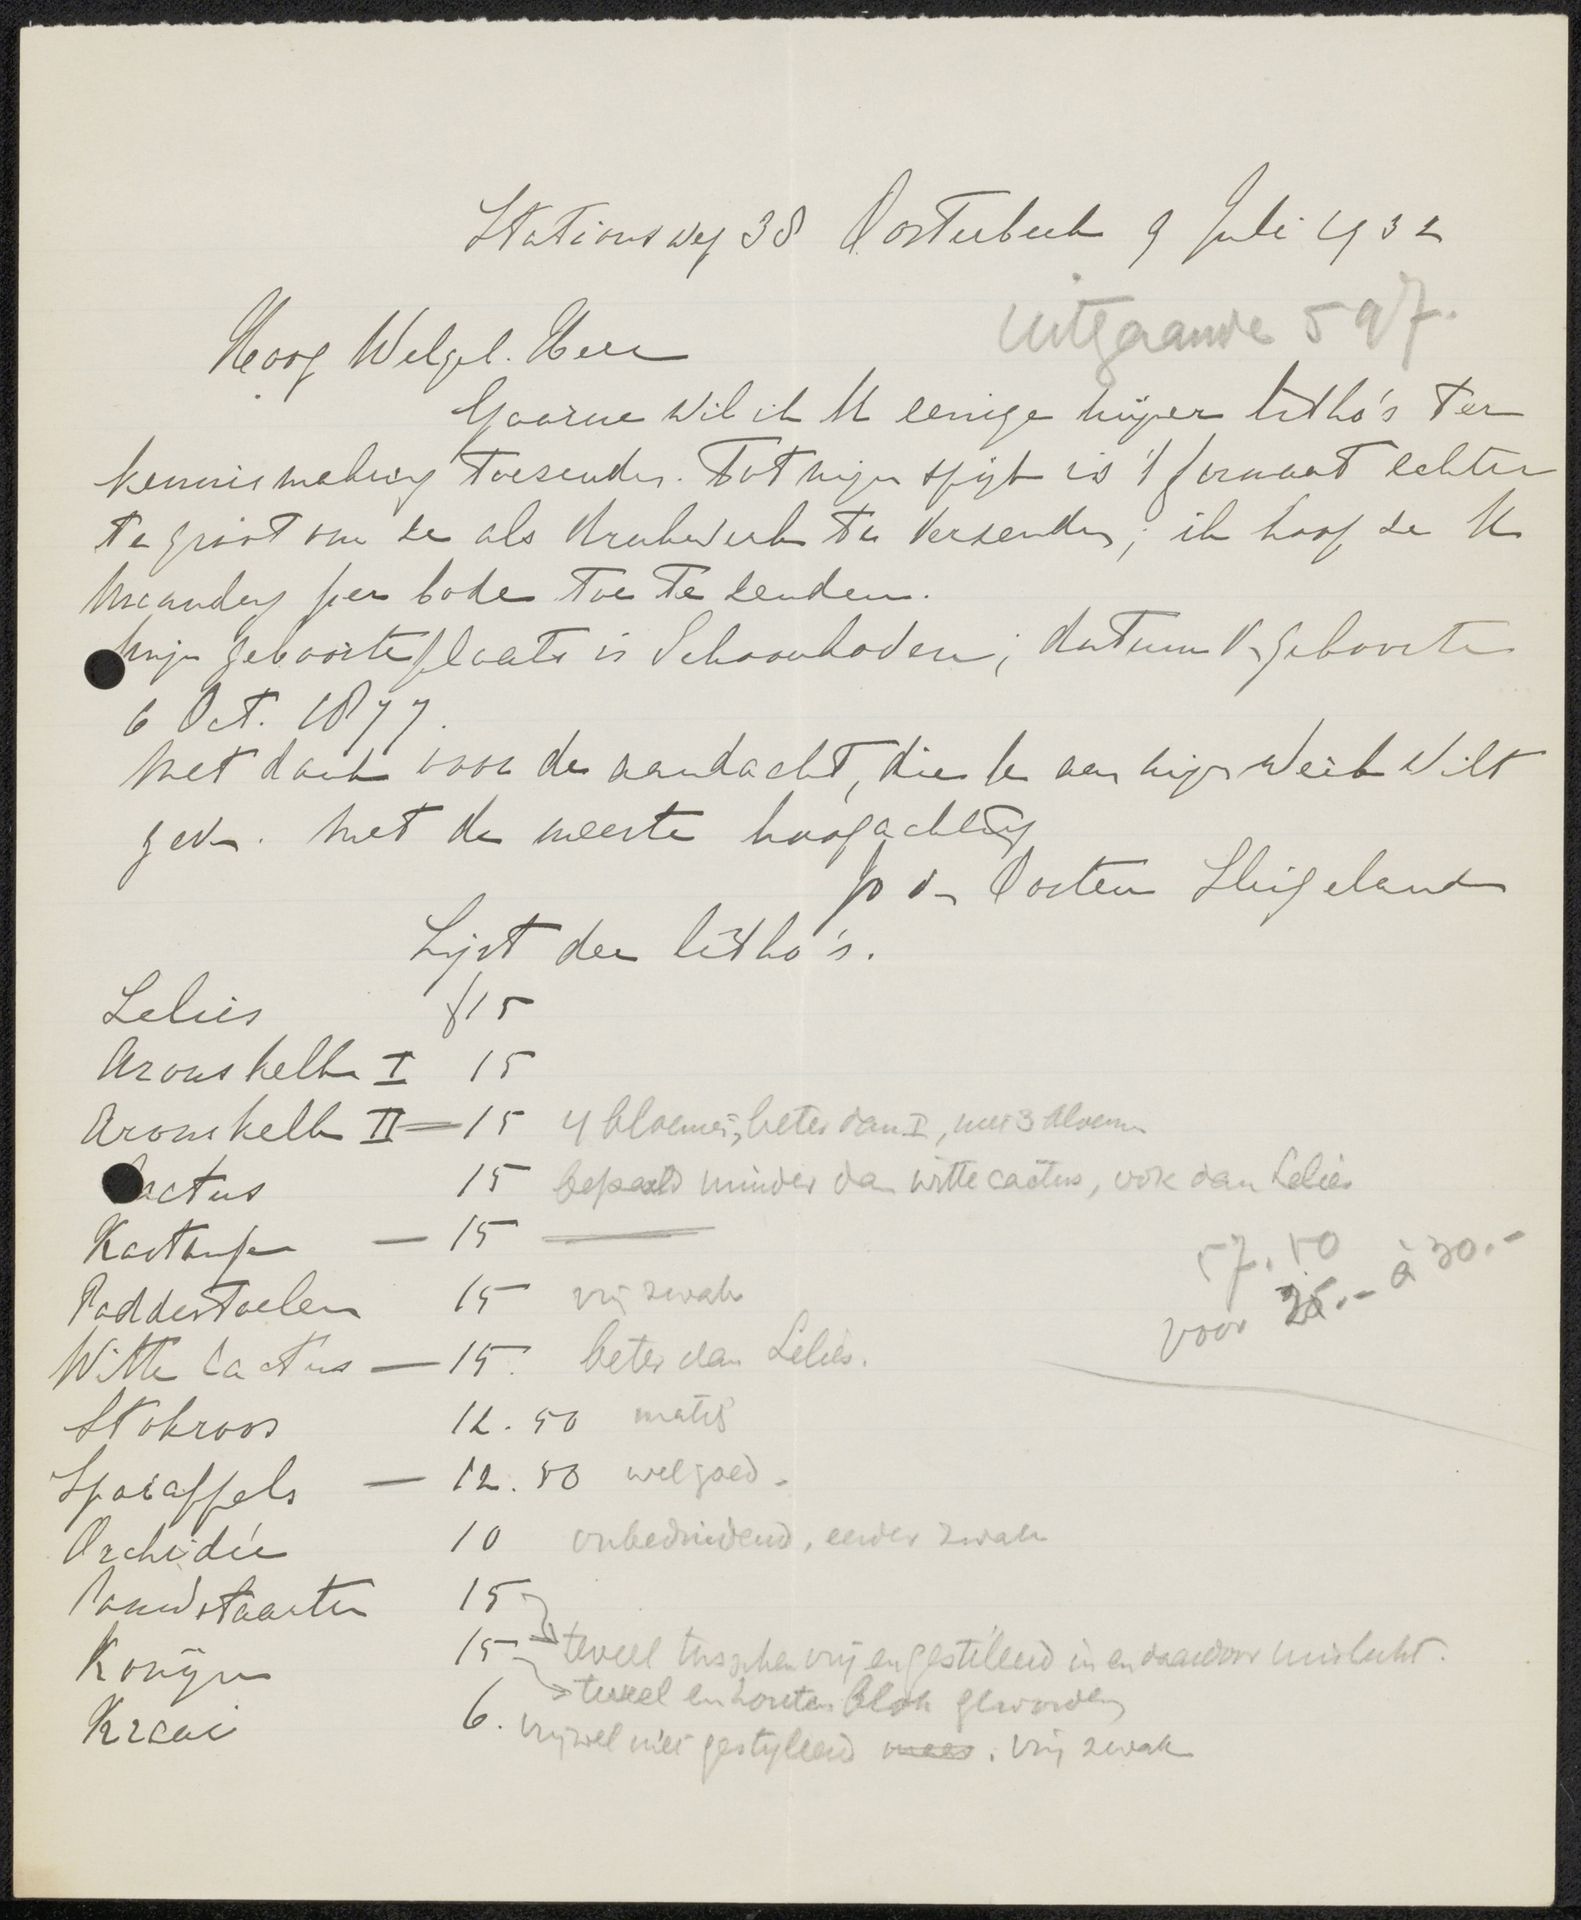 Stationsweg 38 Oosterbeek 9 Juli 1932
uitgaande 597.
Hoog Welgeb. Heer
Gaarne wil ik U eenige mijner litho's ter
kennismaking toezenden. Tot mijn spijt is 't formaat echter
te groot om ze als drukwerk te verzenden; ik hoop ze U
Maandag per bode toe te zenden.
Mijn geboorteplaats is Schoonhoven; datum v. geboorte
6 Oct. 1877.
Met dank voor de aandacht, die U aan mijn werk wilt
geven. Met de meeste hoogachting
Jo v. Oosten Slingeland
Lijst der litho's.
Lelies f 15
Aronskelk I 15
Aronskelk II — 15 4 bloemen, beter dan I, met 3 bloemen
Cactus 15 bepaald minder dan witte cactus, ook dan Lelies
Kastanje — 15 —
57.50
Paddestoelen 15 vrij zwak
voor 25.- à 30.-
Witte Cactus — 15. beter dan Lelies.
Stokroos 12.50 matig
Sierappels — 12.50 wel goed.
Orchidée 10 onbeduidend, eerder zwak
Pauwstaarten 15
Konijn 15 teveel tusschen vrij en gestileerd in en daardoor mislukt.
teveel een houten blok geworden
Kraai 6. vrijwel niet gestyleerd. vrij zwak